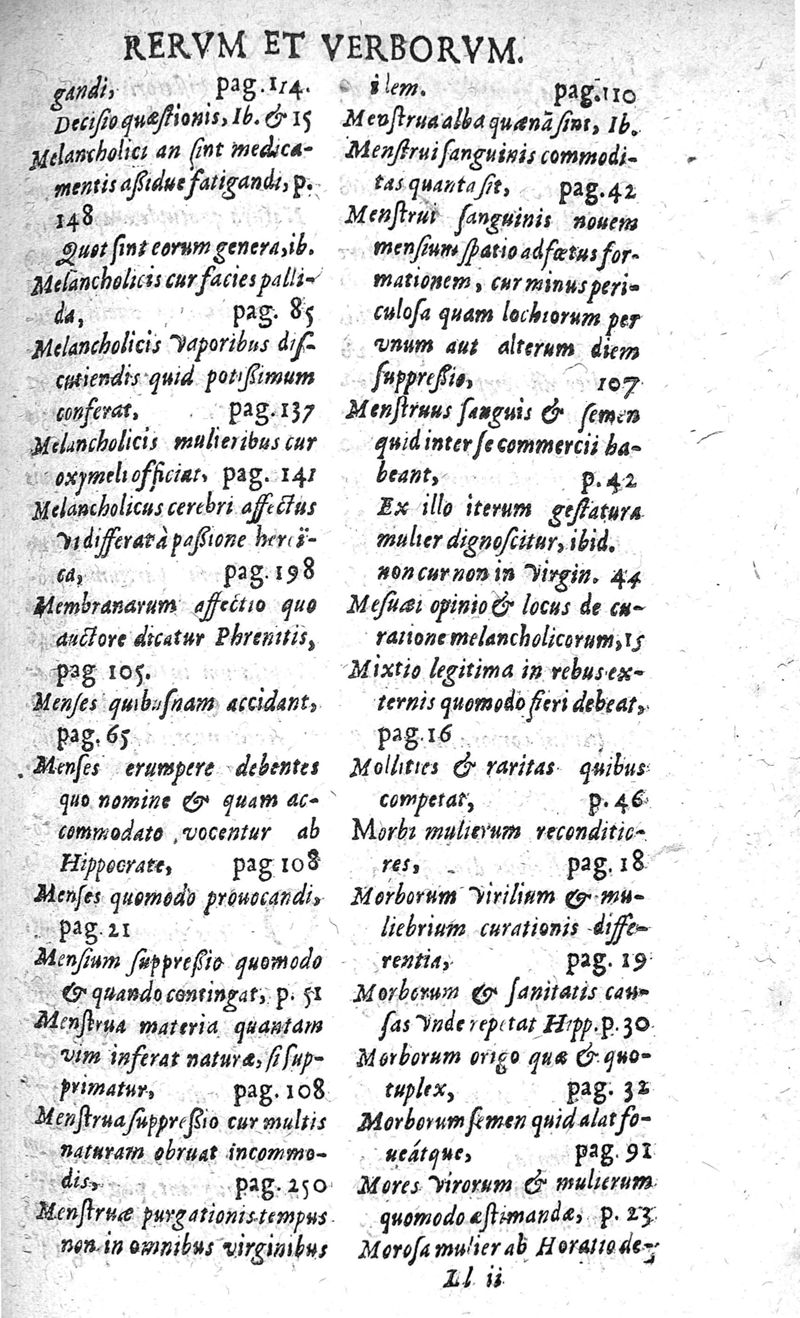 RERVM ET VERBORVM.
gandi, pag. 114.
Decisio quæstionis, Ib. & 15
Melancholici an sint medica-
mentis aßidue fatigandi, p.
148
Quot sint eorum genera, ib.
Melancholicis cur facies palli-
da, pag. 85
Melancholicis vaporibus dis-
cutiendis quid potißimum
conferat, pag. 137
Melancholicis mulieribus cur
oxymeli officiat, pag. 141
Melancholicus cerebri affectus
vt differat à paßione heroï-
ca, pag. 198
Membranarum affectio quo
auctore dicatur Phrenitis,
pag 105.
Menses quibusnam accidant,
pag. 65
Menses erumpere debentes
quo nomine & quam ac-
commodato vocentur ab
Hippocrate, pag 108
Menses quomodo prouocandi,
pag. 21
Mensium suppreßio quomodo
& quando contingat, p. 51
Menstrua materia quantam
vim inferat naturæ, si sup-
primatur, pag. 108
Menstrua suppreßio cur multis
naturam obruat incommo-
dis, pag. 250
Menstruæ purgationis tempus
non in omnibus virginibus
ilem. pag. 110
Menstrua alba quænā sint, Ib.
Menstrui sanguinis commodi-
tas quanta sit, pag. 42
Menstrui sanguinis nouem
mensium spatio ad fœtus for-
mationem, cur minus peri-
culosa quam lochiorum per
vnum aut alterum diem
suppreßio, 107
Menstruus sanguis & semen
quid inter se commercii ha-
beant, p. 42
Ex illo iterum gestatura
mulier dignoscitur, ibid.
non cur non in virgin. 44
Mesuæi opinio & locus de cu-
ratione melancholicorum, 15
Mixtio legitima in rebus ex-
ternis quomodo fieri debeat,
pag. 16
Mollities & raritas quibus
competat, p. 46
Morbi mulierum reconditio-
res, pag. 18
Morborum virilium & mu-
liebrium curationis diffe-
rentia, pag. 19
Morborum & sanitatis cau-
sas vnde repetat Hipp. p. 30
Morborum origo quæ & quo-
tuplex, pag. 32
Morborum semen quid alat fo-
ueátque, pag. 91
Mores virorum & mulierum
quomodo æstimandæ, p. 23
Morosa mulier ab Horatio de-
Ll ii